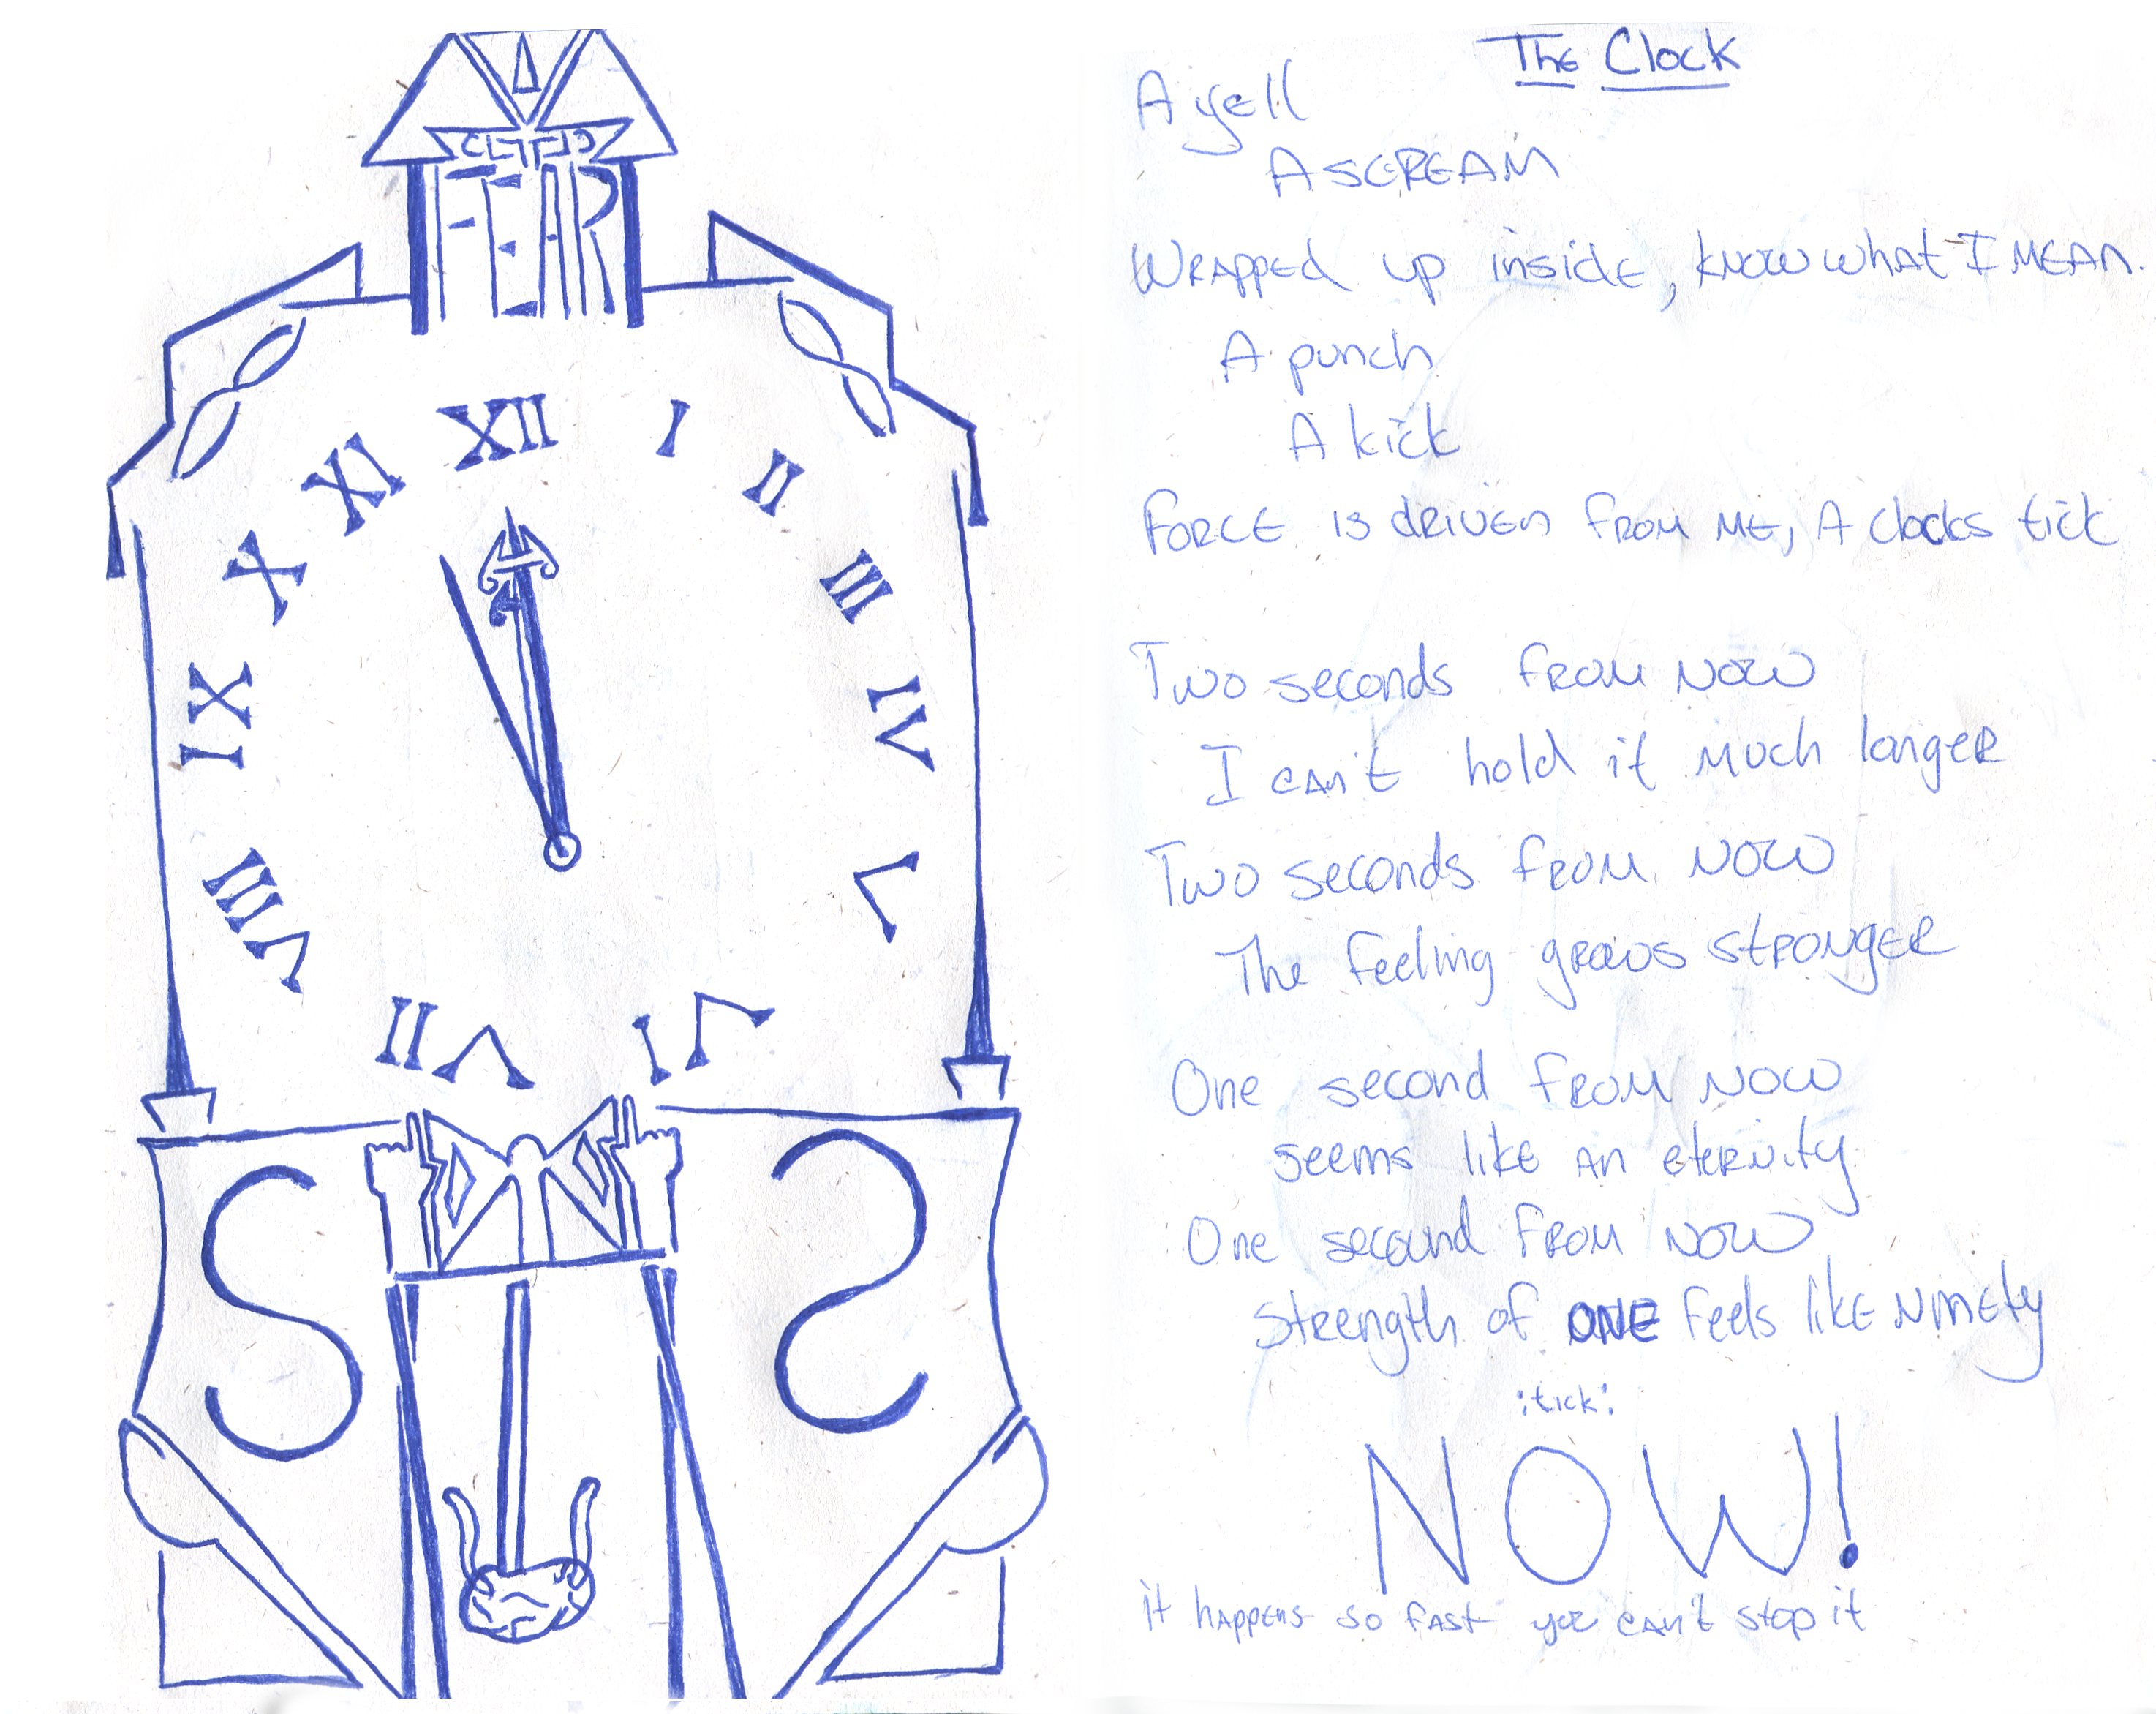 FEAR
XII
I
II
III
IV
V
VI
VII
VIII
IX
X
XI
The Clock
A yell
A SCREAM
Wrapped up inside, know what I MEAN.
A punch
A kick
Force is driven from me, A clocks tick
Two seconds from now
I can't hold it much longer
Two seconds from now
The feeling grows stronger
One second from now
seems like an eternity
One secound from now
strength of ONE feels like ninety
:tick:
NOW!
it happens so fast you can't stop it